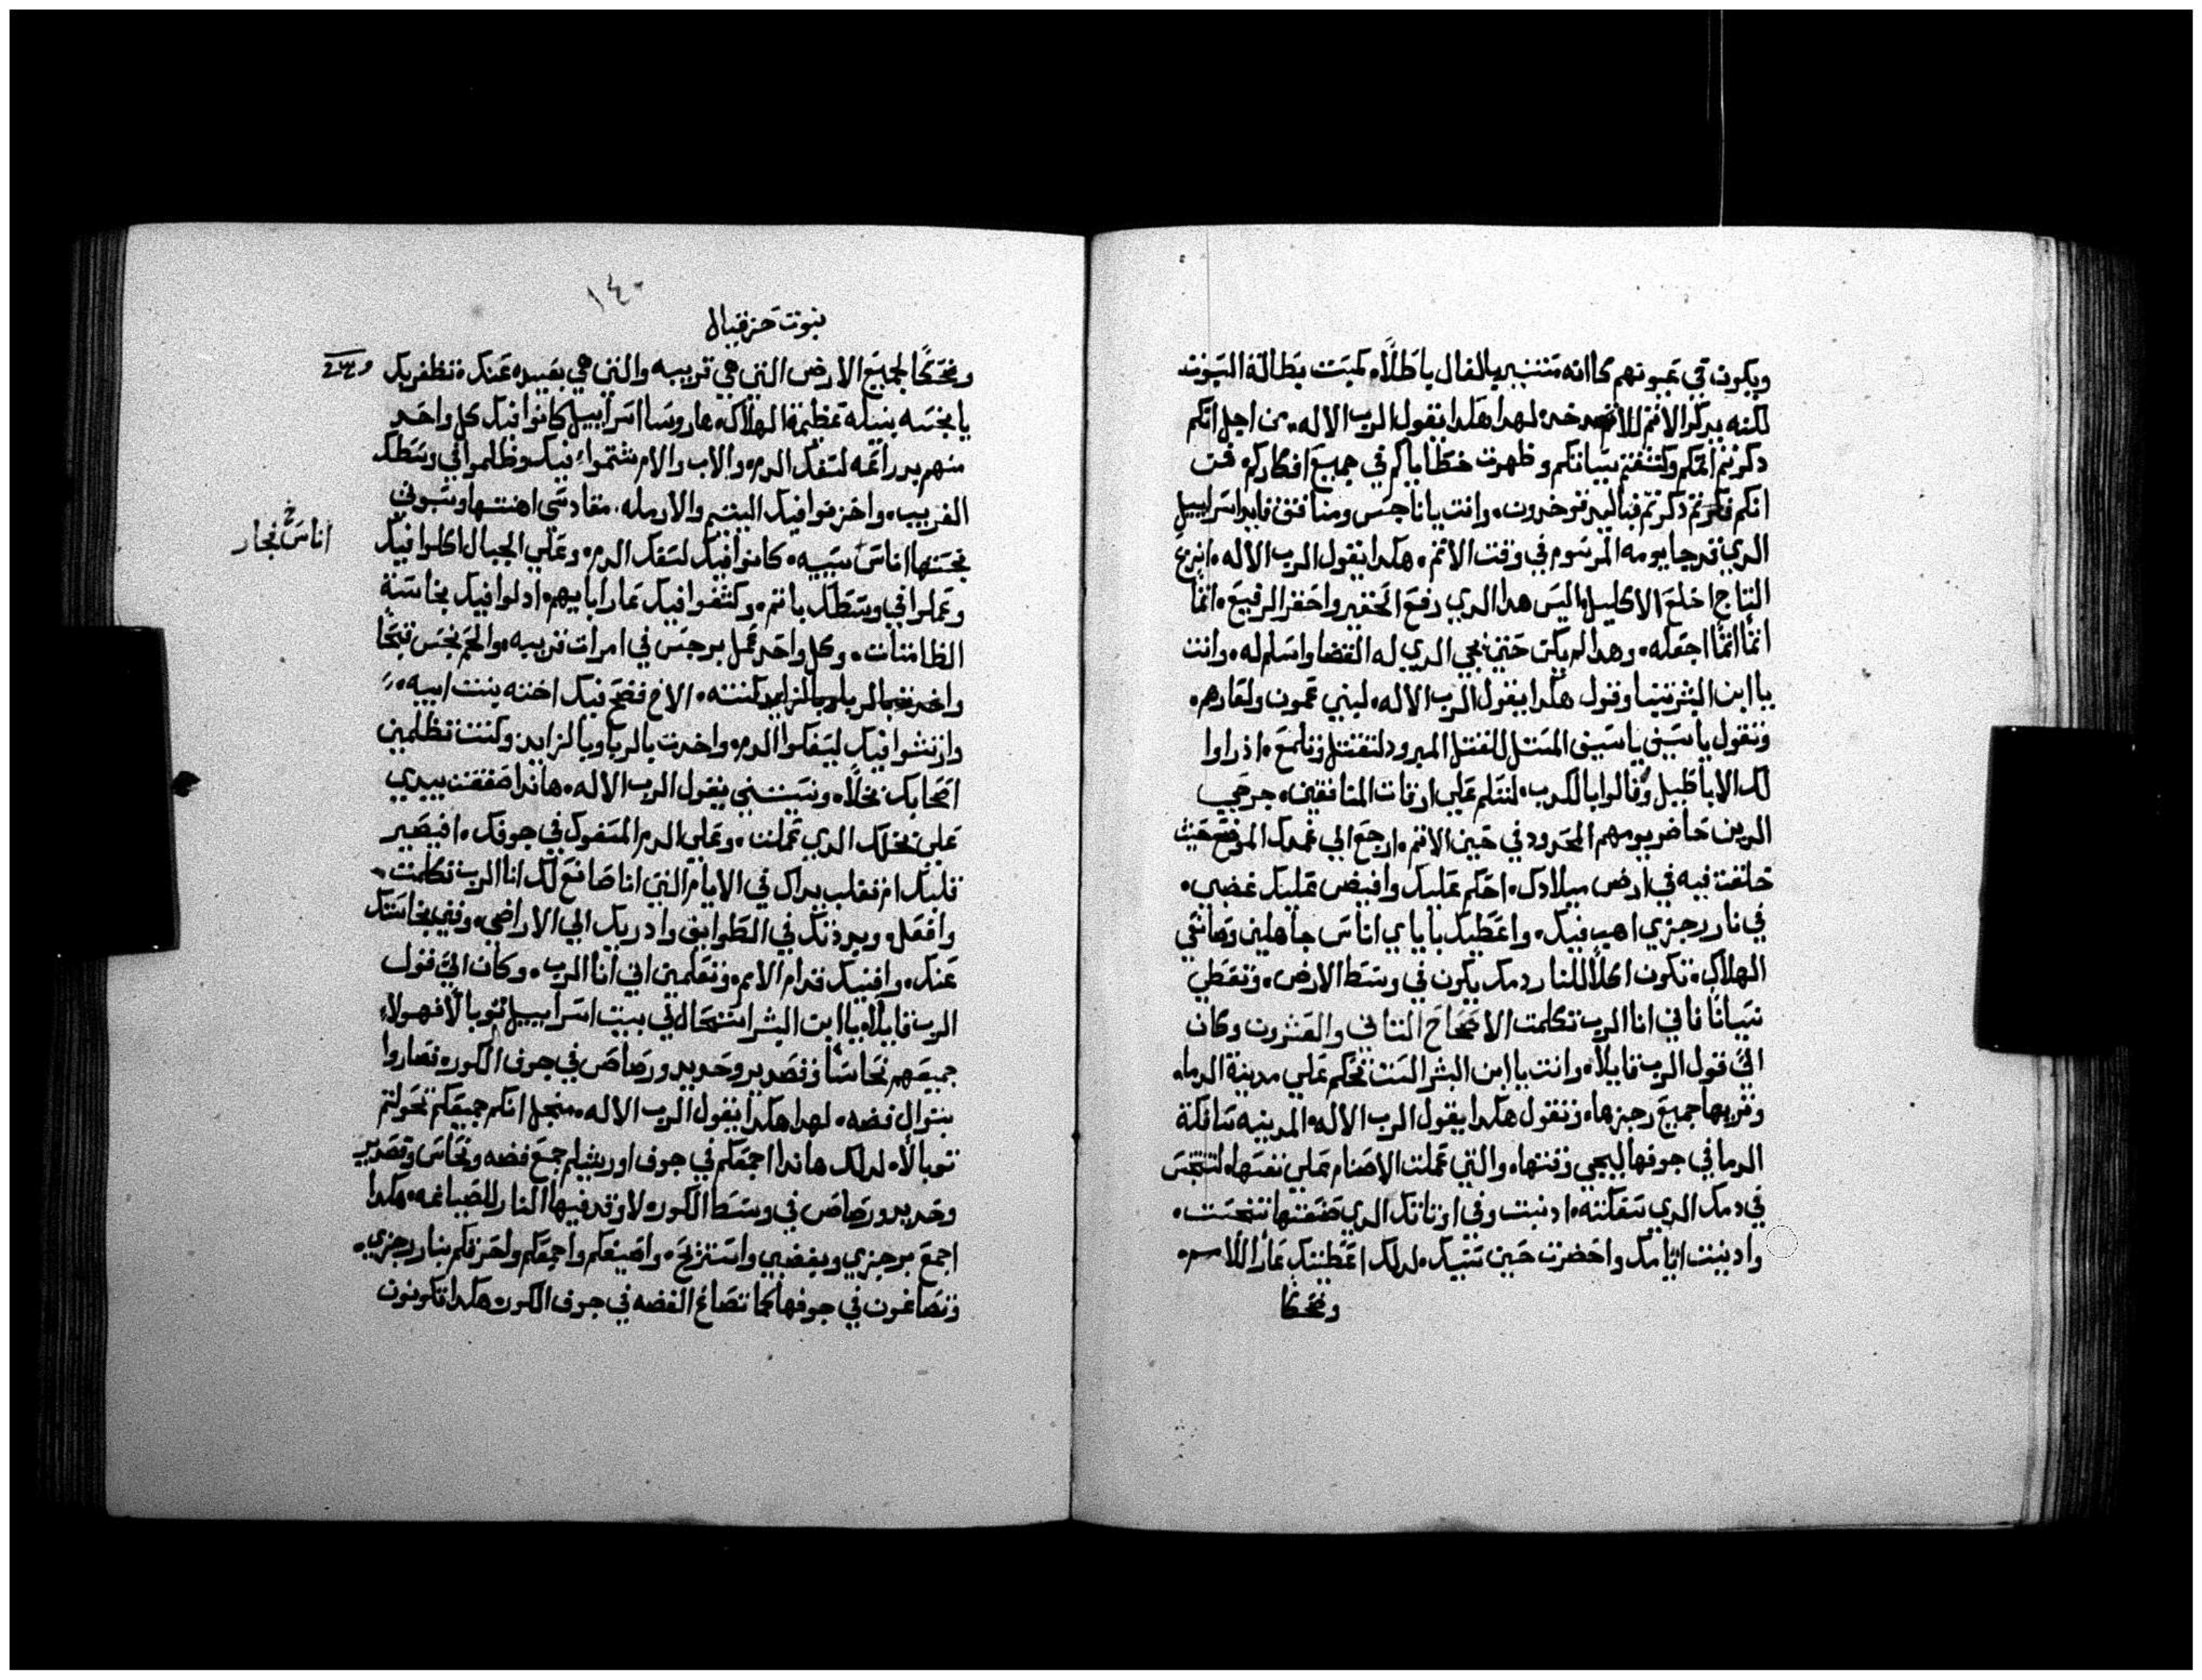 ويكون في عيونهم كاانه متنبي بالفال باطلاً، كمبت بطالة السبوت
لكنه يدكر الاتم للاخد خده لهدا هكدا يقول الرب الاله. من اجل انكم
دكرتم اتمكم وكشفتم سيانكم وظهرت خطاياكم في جميع افكاركم فمن
انكم فكرتم دكرتم فباليد توخدون. وانت يا ناجس ومنافق قايد اسراييل
الدي قد جا يومه المرسوم في وقت الاتم. هكدا يقول الرب الاله. انزع
التاج اخلع الاكليل. اليس هدا الدي رفع الحقير واحقر الرفيع. اتماً
اتماً اتماً اجعله. وهدا لم يكن حتى يجي الدي له القضا واسلم له. وانت
يا ابن البشر تنبا وقول هكدا يقول الرب الاله. لبني عمون ولعارهم.
وتقول يا سيف يا سيف المستل للقتل المبرود لتقتل وتلمع. اذ راوا
لك الاباطيل وقالوا بالكدب. لتقلم علي ارقات المنافقين. جرحي
الدين حاضر يومهم المحدود في حين الاتم. ارجع الي غمدك الموضع حيث
خلقت فيه في ارض ميلادك. احكم عليك وافيض عليك غضبي.
في نار رجزي اهب فيك. واعطيك بايادي اناس جاهلين وصانعي
الهلاك. تكون اكلاً للنار دمك يكون في وسط الارض. وتعطي
نسياناً فاني انا الرب تكلمت الاصحاح التاني والعشرون وكان
اليّ قول الرب قايلاً. وانت يا ابن البشر الست تحكم علي مدينة الدما.
وتريها جميع رجزها. وتقول هكدا يقول الرب الاله. المدينه سافكة
الدما في جوفها ليجي وقتها. والتي عملت الاصنام علي نفسها لتتنجس
في دمك الدي سفكته. ادنبت وفي اوتانك الدي صنعتها تنجست.
وادنيت ايامك واحضرت حين سنيك. لدلك اعطيتك عاراً للامم.
وضحكا
١٤٠
نبوت حزقيال
وضحكاً لجميع الارض التي هي قريبه والتي هي بعيده عنك. تظفر بك
يا نجسه نبيله عظيمة الهلاك. ها روسا اسراييل كانوا فيك كل واحد
منهم بدراعه لسفك الدم. والاب والام شتموا فيك وظلموا في وسطك
الغريب. واحزنوا فيك اليتيم والارمله. مقادسي اهنتها وسبوتي
نجستها اناس سبيه. كانوا فيك لسفك الدم. وعلي الجبال اكلوا فيك
اناس فجار
وعملوا في وسطك باتم. وكشفوا فيك عار اباييهم. ادلوا فيك نجاسة
الطامتات. وكل واحد عمل برجس في امرات قريبه. والحم نجس قبحاً
كنته. الاخ فضح فيك اخته بنت ابيه.
وارتشوا فيك ليسفكوا الدم. واخدت بالربا وبالزايد وكنت تظلمين
اصحابك بخلاً. ونسيتني يقول الرب الاله. هاندا صفقت بيدي
علي بخلك الدي عملت. وعلي الدم المسفوك في جوفك. افيصبر
قلبك ام تغلب يداك في الايام التي انا صانع لك انا الرب تكلمت.
وافعل. ويبردنك في الطوايف وادريك الي الاراضي. وفني نجاستك
عنك. وافنيك قدام الامم. وتعلمين اني انا الرب. وكان اليّ قول
الرب قايلاً. يا ابن البشر استحال لي بيت اسراييل توبالاً فهولاء
جميعهم نحاساً وقصدير وحديد ورصاص في جوف الكوره فصاروا
بتوال فضه. لهدا هكدا يقول الرب الاله. منجل انكم جميعكم تحولتم
توبالاً. لدلك هاندا اجمعكم في جوف اورشليم جمع فضه ونحاس وقصدير
وحديد ورصاص في وسط الكوره لاوقد فيها النار للصباغه. هكدا
اجمع برجزي وبغضبي واستريح. واصيغكم واجمعكم واحرقكم بنار رجزي.
وتصاغون في جوفها كما تصاغ الفضه في جوف الكوره هكدا تكونون